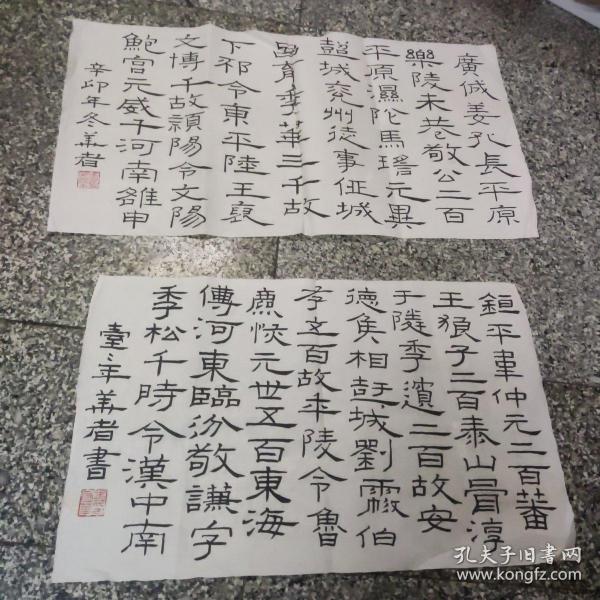 廣姜孔長平原
樂陵朱恭敬公二百
平原濕陰馬瑤元冀
彭城兗州從事任城
呂育季華三千故
下邳令東平陸王褒
文博千故潁陽令文陽
鮑宮元威千河南雒申
辛卯年冬華者
鉅平韋仲元二百蕃
王狼子二百泰山費淳
于隣季遺二百故安
德侯相彭城劉彪伯
存五百故平陵令魯
麃恢元世五百東海
傅河東臨汾敬謙字
季松千時令漢中南
年華者書
孔夫子旧书网
www.kongfz.com